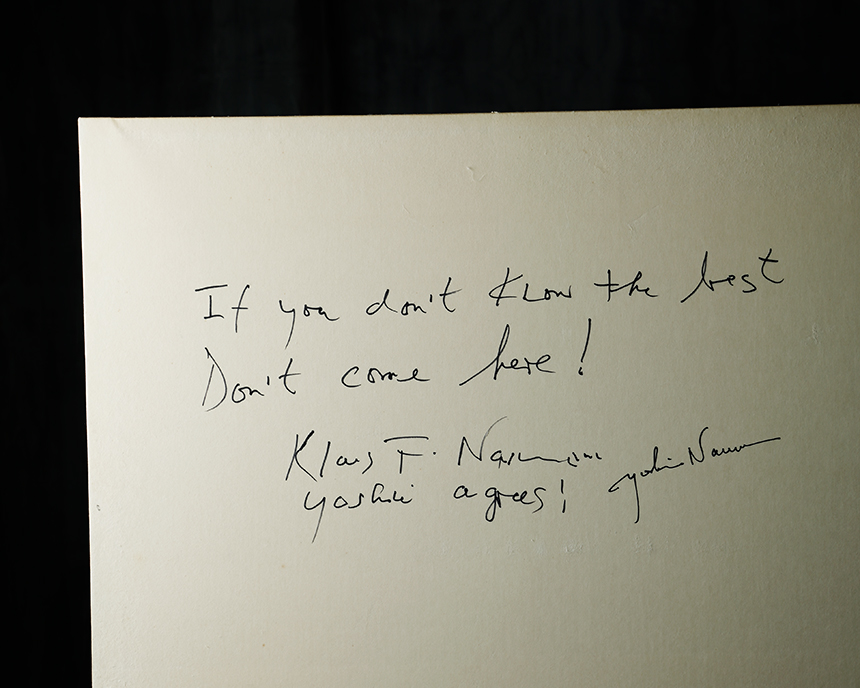 If you don't know the best
Don't come here!
Klaus F. Naumann
Yoshie agrees! Yoshie Naumann